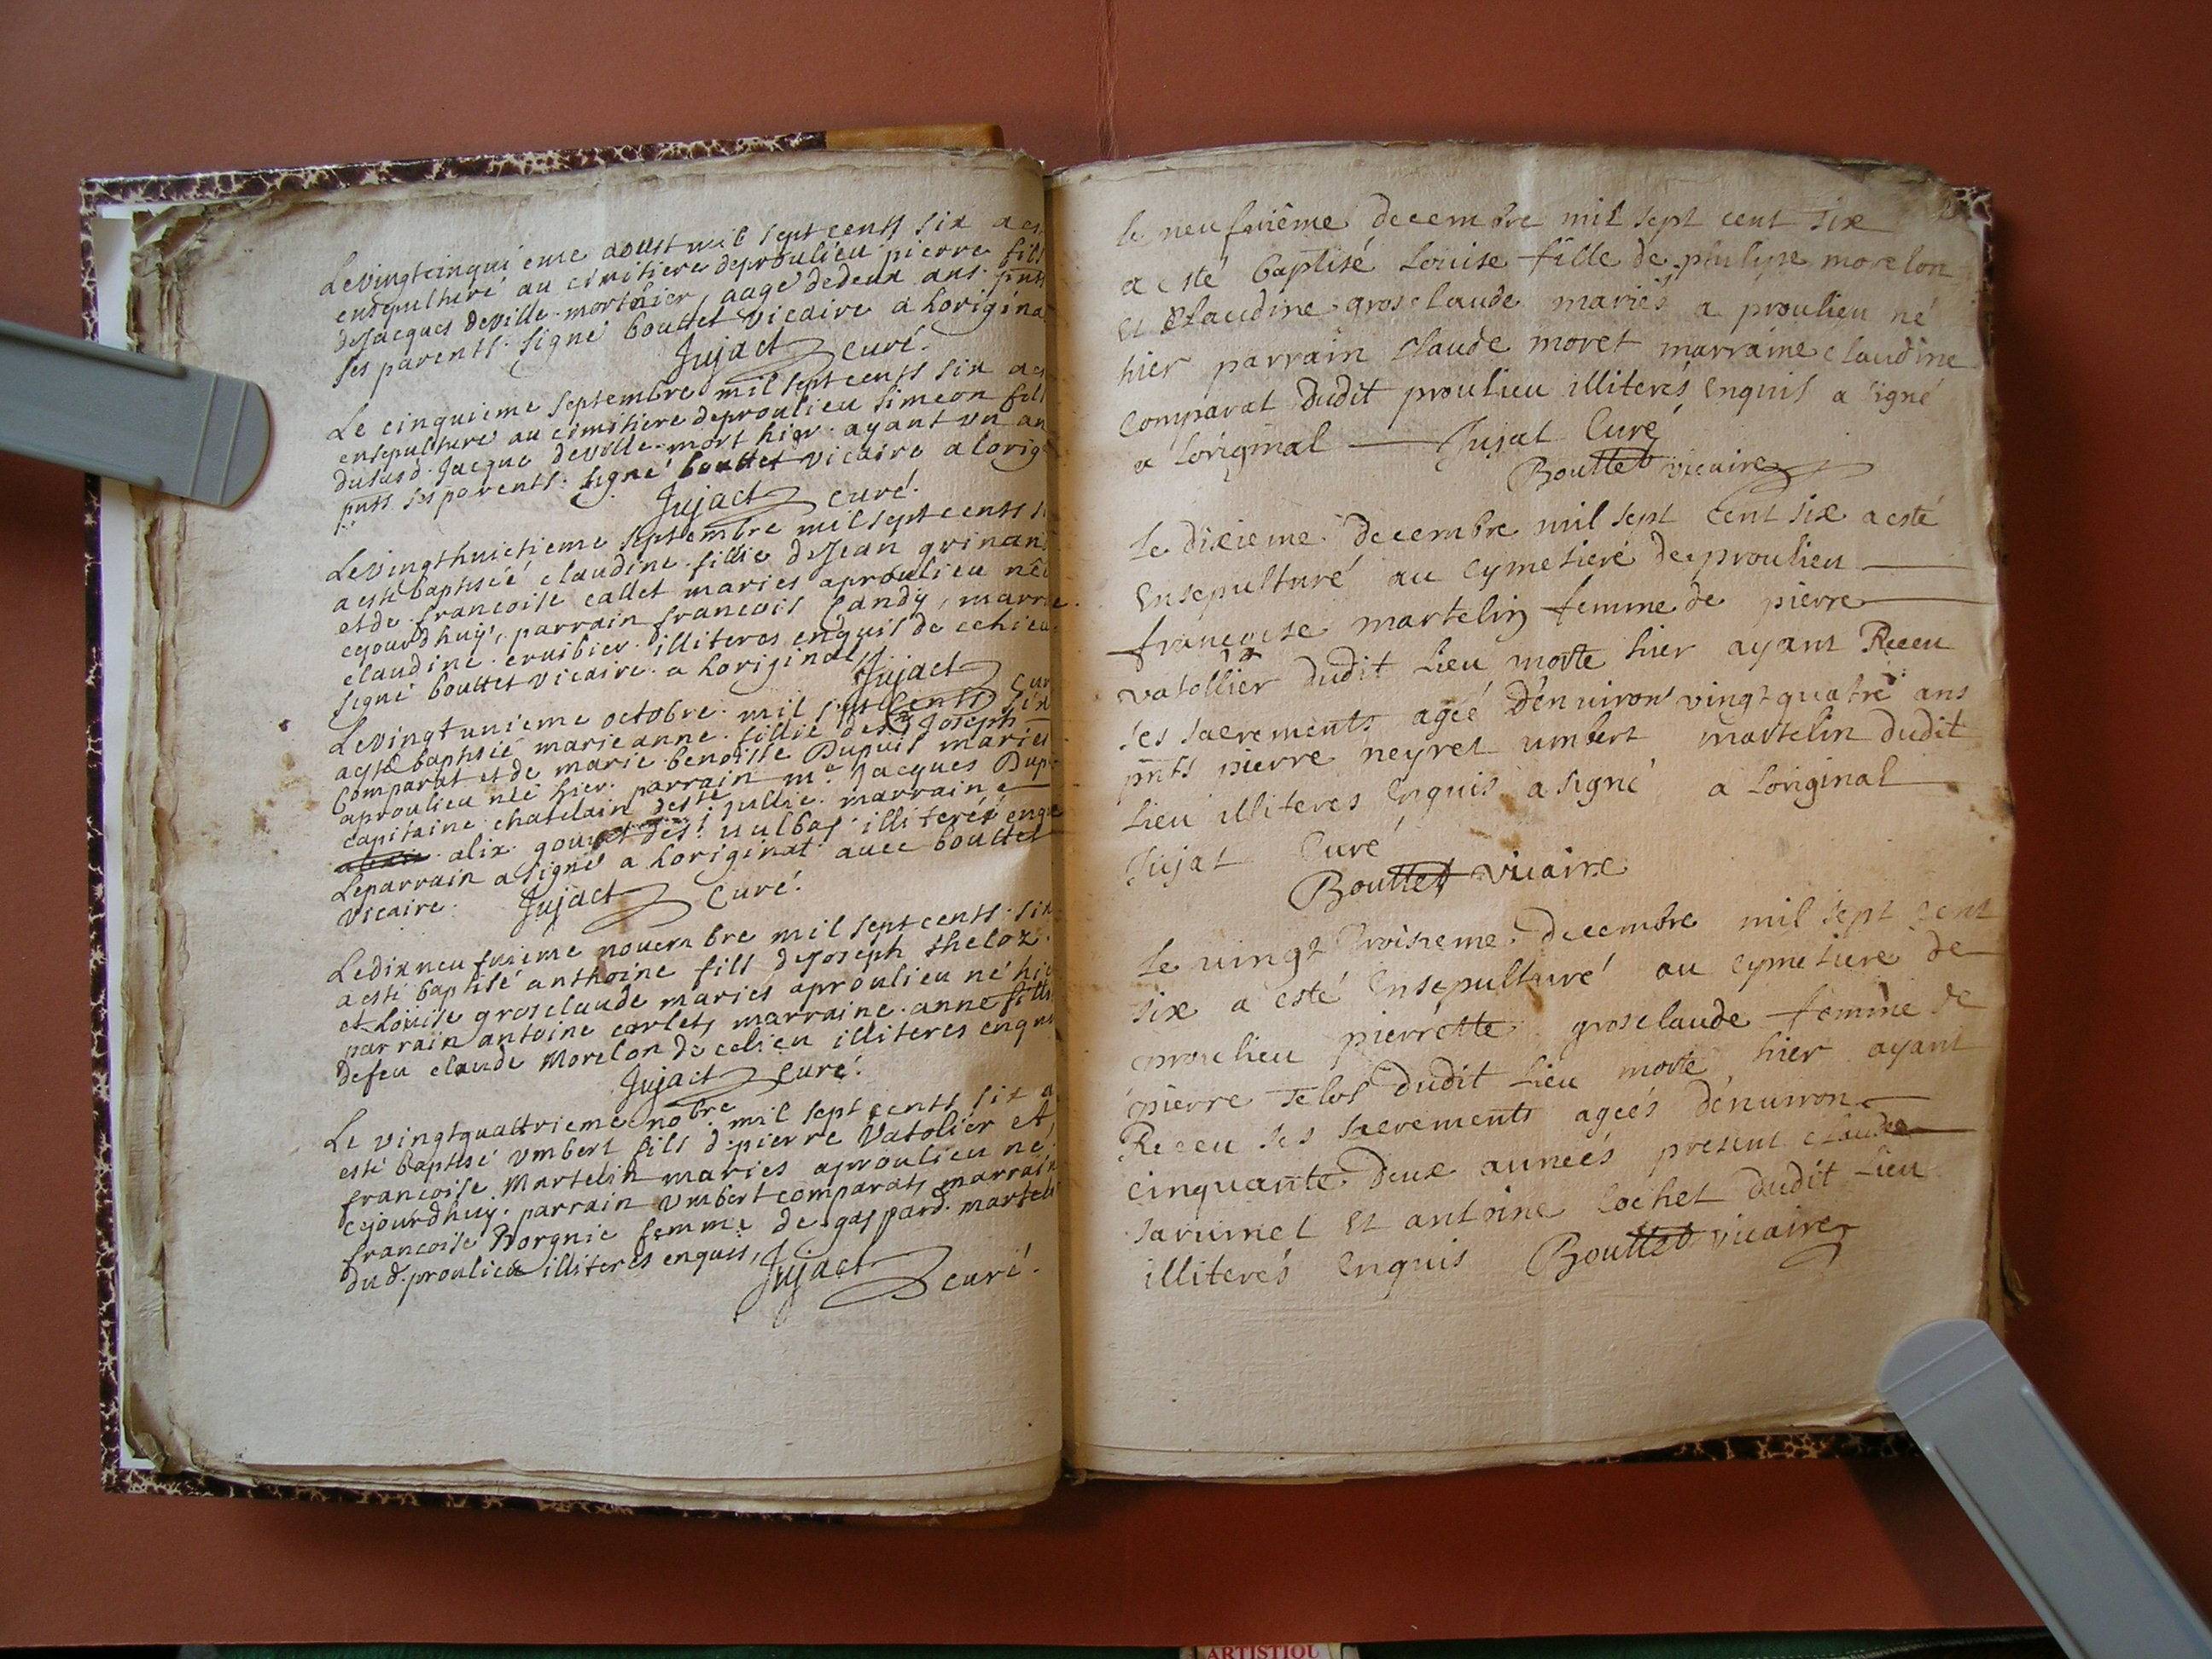 Le vingtcinquieme aoust mil sept cents six a es
ensepulturé au cimitiere de proulieu pierre fils
de Jacques deville mort hier, aagé de deux ans. pnts
ses parents. signé bouttet vicaire a Loriginal
Jujact curé.
Le cinquieme septembre mil sept cents six a es
ensepulturé au cimitiere de proulieu simeon fils
du susd. Jacque deville mort hier ayant un an
pnts ses parents. signé bouttet vicaire a lorig
Jujact curé.
Le vingthuictieme septembre mil sept cents s
a esté baptisée claudine fillie de Jean grinan
et de francoise callet maries a proulieu née
cejourdhuy, parrain francois Candy, marr
claudine cruibier illiteres enquis de ce lieu
signé bouttet vicaire a Loriginal
Jujact cur
Le vingtunieme octobre mil sept cents six
a esté baptisée marie anne fillie de sr Joseph
Comparat et de marie benoiste Dupuis maries
a proulieu née hier. parrain me Jacques Dup
capitaine chatelain de st jullie. marraine
alix gouvat des nulbas illiterés enqu
Le parrain a signé a Loriginal avec bouttet
vicaire. Jujact curé.
Le dixneufvieme novembre mil sept cents six
a esté baptisé anthoine fils de Joseph theloz
et Louise grosclaude maries a proulieu né hie
parrain antoine carlet, marraine anne fille
de feu claude Morelon de ce lieu illiteres enquis
Jujact curé.
Le vingtquattrieme nobre mil sept cents six a
esté baptisé umbert fils d. pierre Vatolier et
francoise Martelin maries a proulieu né
cejourdhuy. parrain umbert comparat, marrain
francoise Borgnie femme de gaspard marteli
dud. proulieu illiteres enquis, Jujact curé.
le neufuième decembre mil sept cent six
a esté baptisé Louise fille de philipe morelon
et Claudine grosclaude mariés a proulieu né
hier parrain Claude moret marraine claudine
Comparat dudit proulieu illiterés Enquis a signé
a Loriginal Jujat Curé
Bouttet vicaire
Le dixieme decembre mil sept cent six a esté
Ensepulturé au Cymetiere de proulieu
françoise martelin femme de pierre
vatollier dudit Lieu morte hier ayant Receu
ses sacrements agée d'énuiron vingt quatre ans
pnts pierre neyret umbert martelin dudit
Lieu illiteres Enquis a signé a Loriginal
Jujat Curé
Bouttet vicaire
Le vingt Troisieme decembre mil sept cent
six a esté Ensepulturé au cymetiere de
proulieu pierrette grosclaude femme de
pierre telos dudit Lieu morte hier ayant
Receu ses sacrements ageés dénuiron
cinquante deux anneés present claude
sarumet Et antoine Cochet dudit Lieu
illiterés Enquis Bouttet vicaire
ARTISTIQU